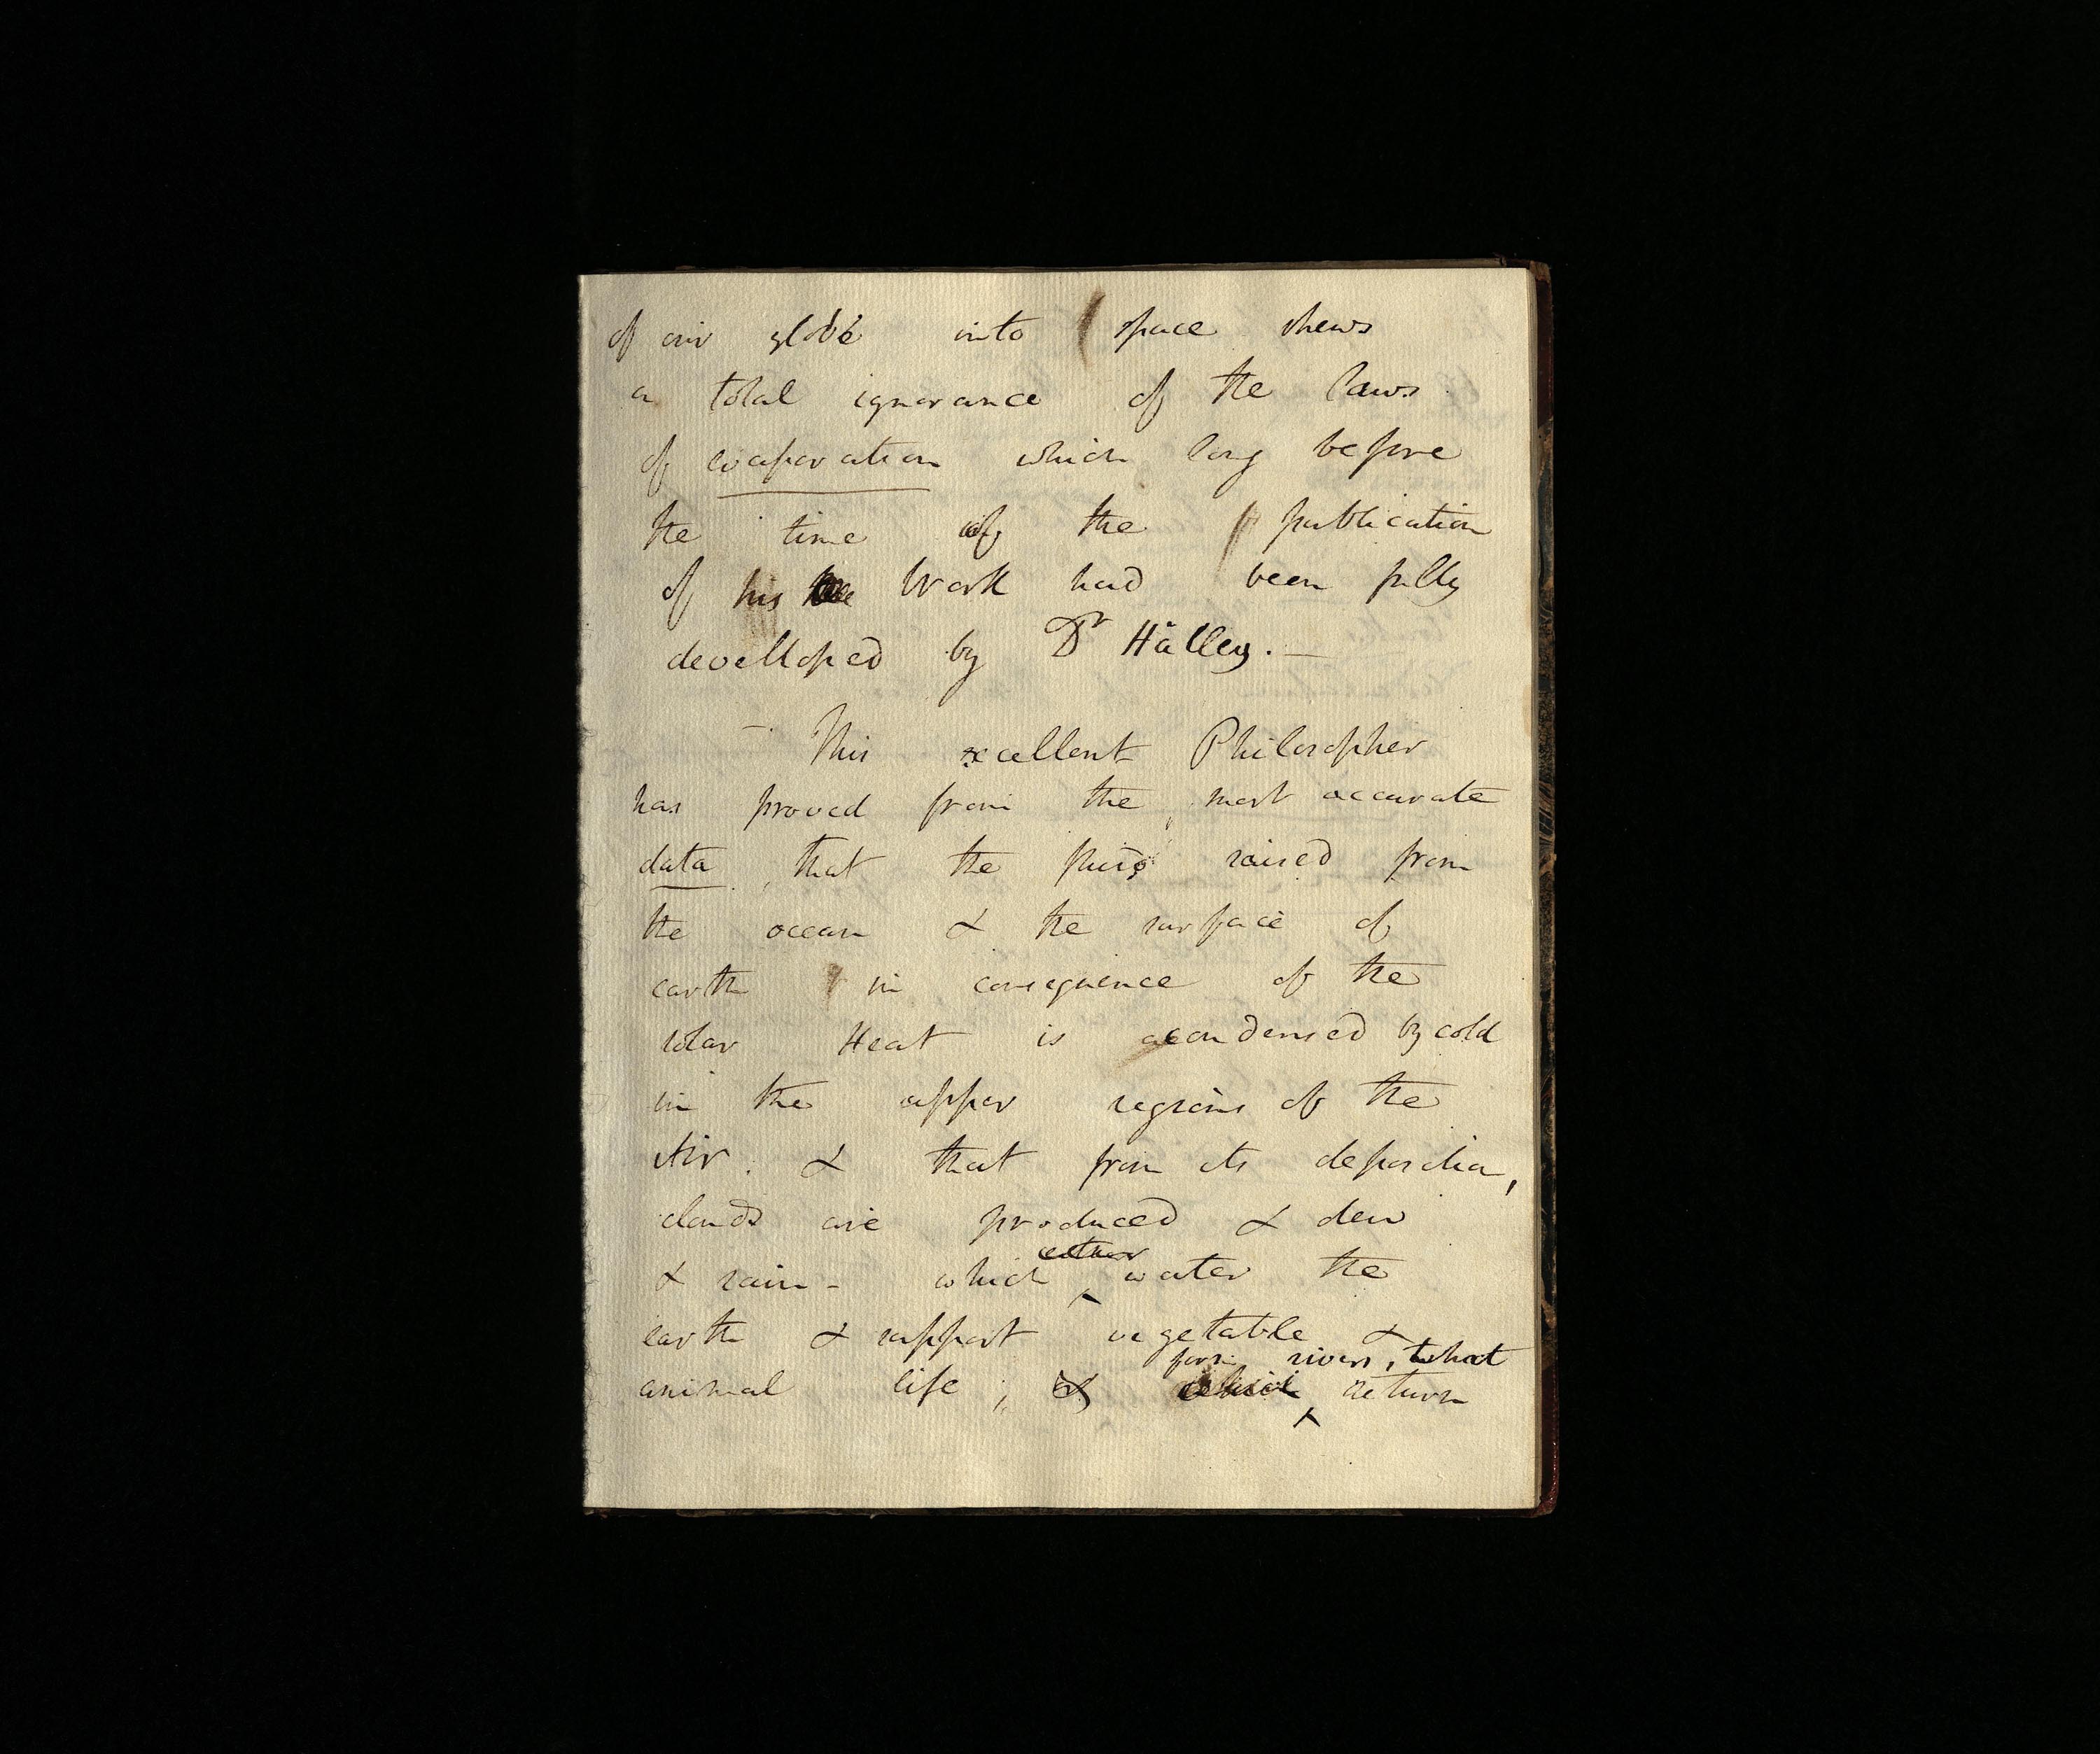 of our globe into space shews
a total ignorance of the laws
of evaporation which long before
the time of the publication
of his Work had been fully
develloped by Dr Halley. —
— This excellent Philosopher
has proved from the most accurate
data, that the fluid raised from
the ocean & the surface of
earth in consequence of the
solar Heat is condensed by cold
in the upper regions of the
Air. & that from its deposition,
clouds are produced & dew
either
& rain - which water the
earth & support vegetable &
form rivers, that
animal life; & which return